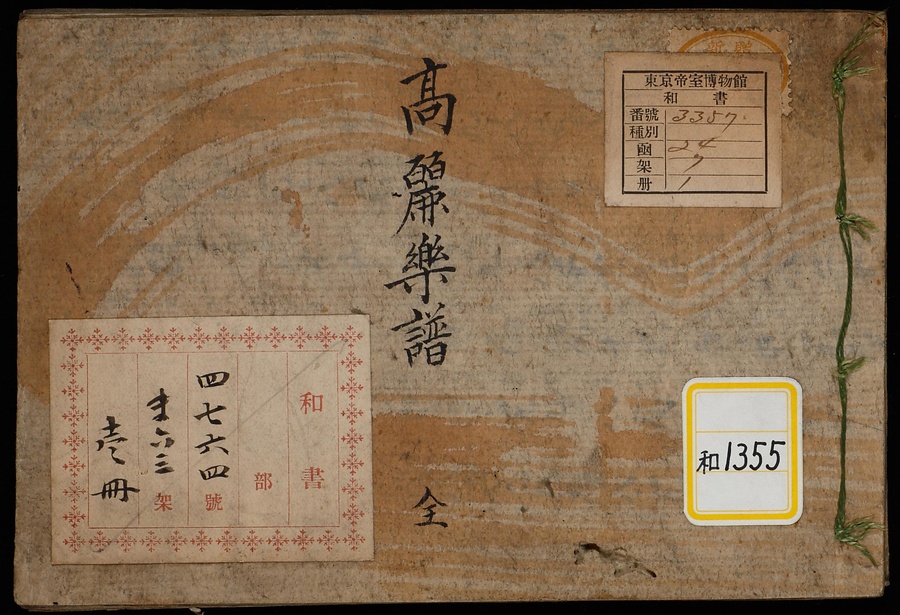 高麗樂譜
全
東京帝室博物館
和書
番號 3357.
種別
凾 24
架 7
册 1
和書
部
四七六四號
六三架
壱冊
和1355